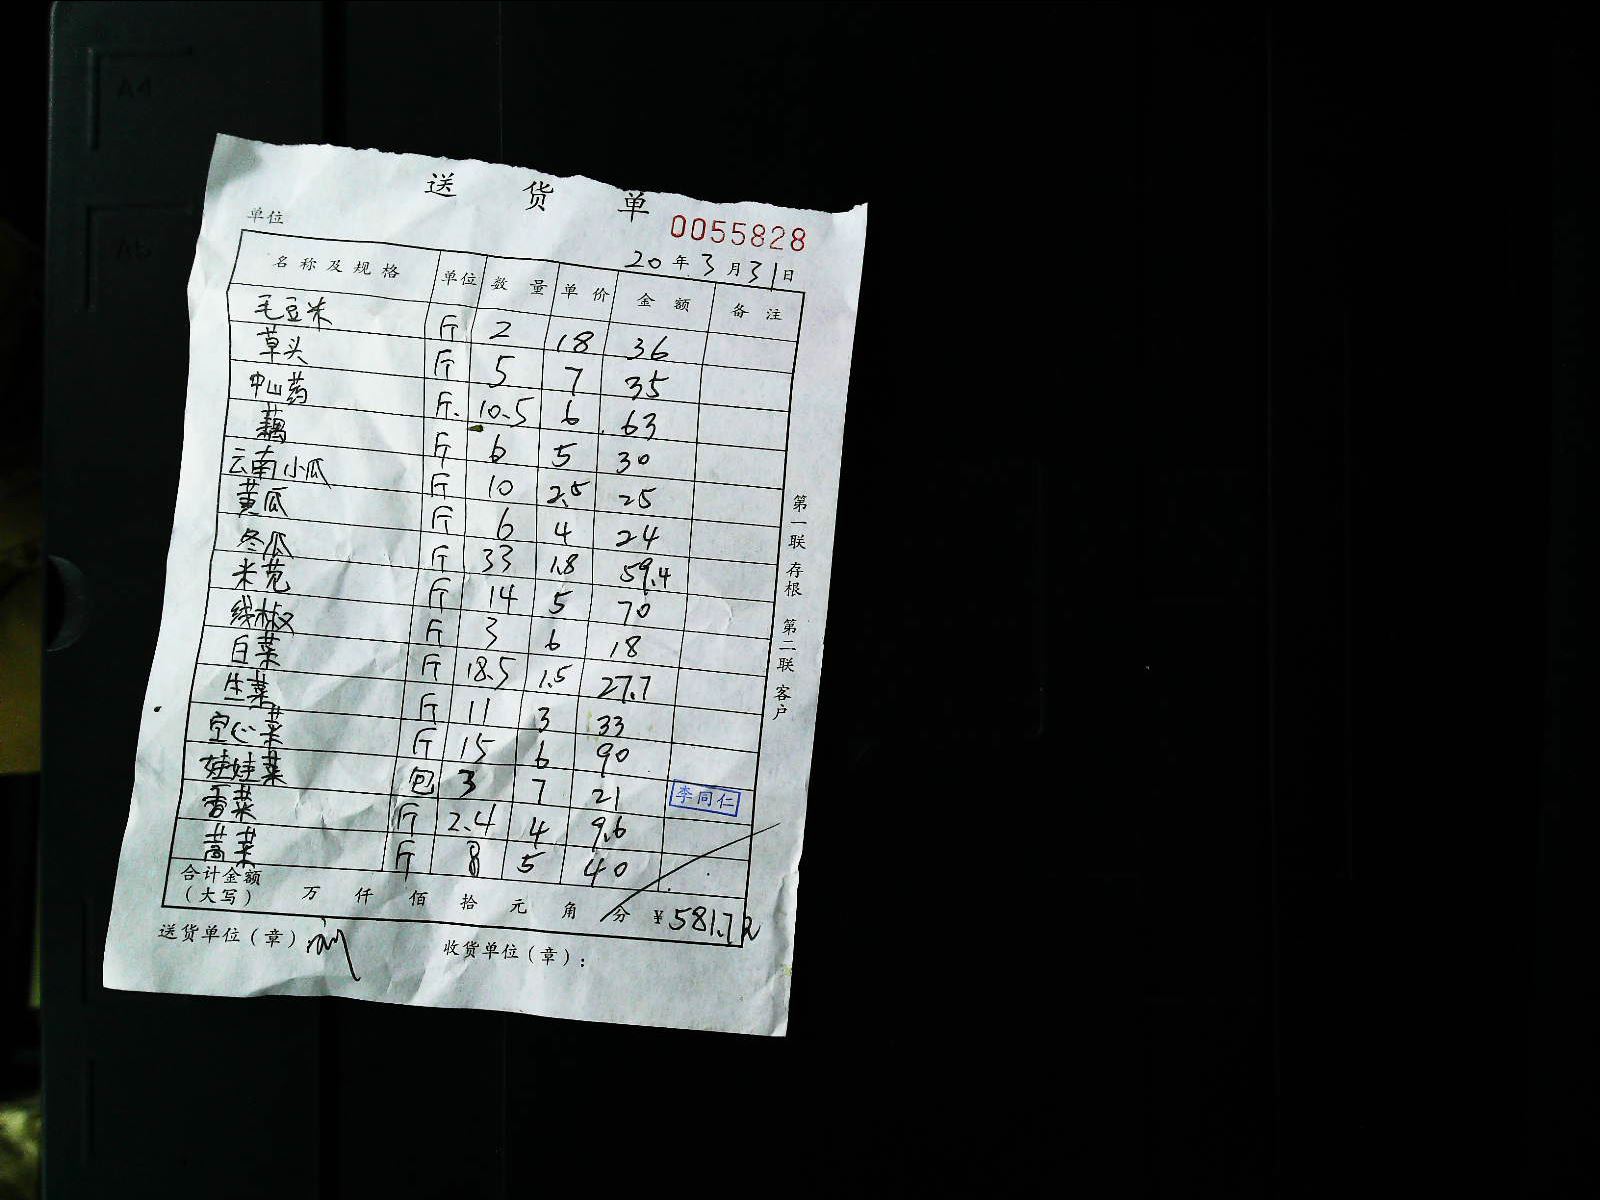 送 货 单
0055828
单位
20 年 3 月 31 日
名称及规格 单位 数量 单价 金额 备注
毛豆米 斤 2 18 36
草头 斤 5 7 35
中山药 斤. 10.5 6 63
藕 斤 6 5 30
云南小瓜 斤 10 2.5 25
黄瓜 斤 6 4 24
冬瓜 斤 33 1.8 59.4
米苋 斤 14 5 70
线椒 斤 3 6 18
白菜 斤 18.5 1.5 27.7
生菜 斤 11 3 33
空心菜 斤 15 6 90
娃娃菜 包 3 7 21
李同仁
香菜 斤 2.4 4 9.6
蒿菜 斤 8 5 40
合计金额
(大写) 万 仟 佰 拾 元 角 分 ¥581.7
送货单位(章) 收货单位(章):
第一联 存根 第二联 客户
A4
A5